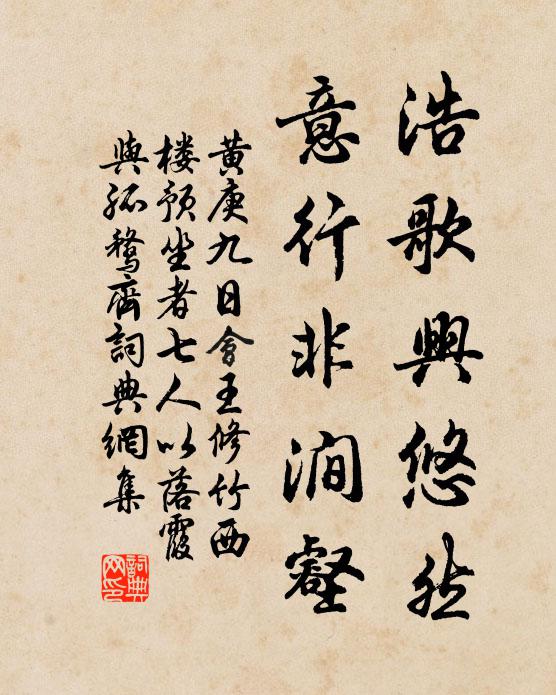 浩歌興悠然
意行非澗壑
黄庚九日會王修竹西
楼預坐者七人以落霞
與孤鶩齊詞典網集
詞典
网印